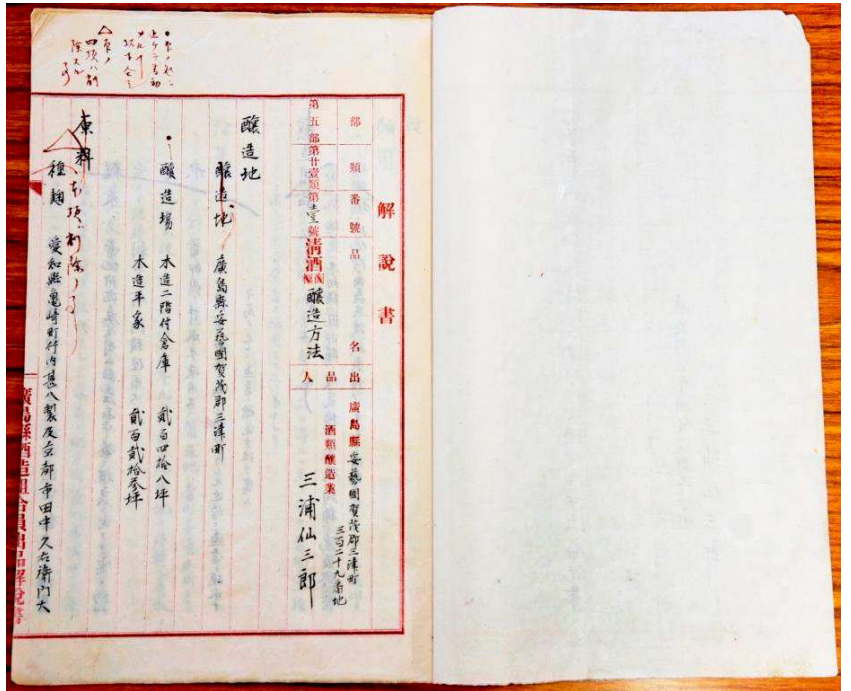 解說書
部類番號
品名
出品人
第五部第廿壹類第壹號
清酒
醸造方法
廣島縣安藝國賀茂郡三津町
三百二十九番地
酒類釀造業
三浦仙三郎
醸造地
醸造地 廣島縣安藝國賀茂郡三津町
醸造場 木造二階付倉庫 貳百四拾八坪
木造平家 貳百貳拾参坪
原料
本項ハ削除ノ事
種麹 愛知縣亀崎町竹内甚八製及京都市田中久右衛門大
△原ノ
四項ハ削
除スル
事
廣島縣酒造組合員出品解說書